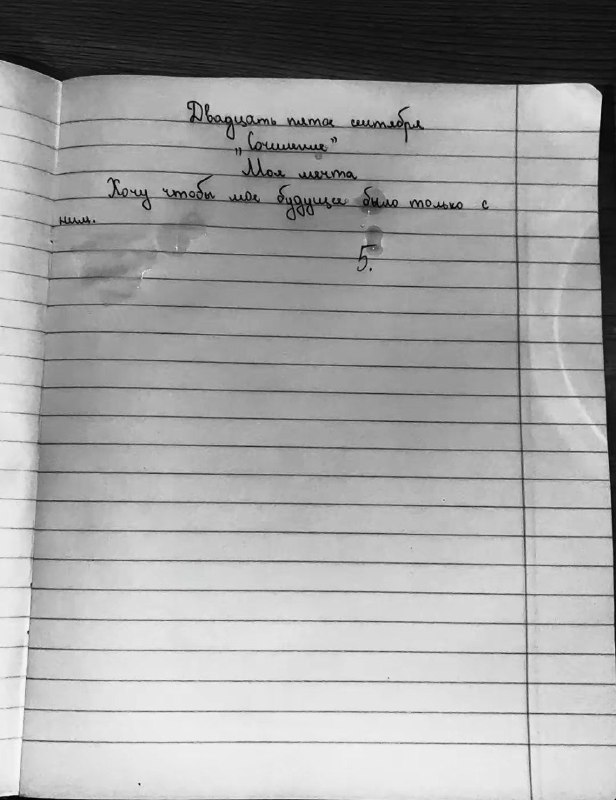 Двадцать пятое сентября
„Сочинение"
Моя мечта
Хочу чтобы мое будущее было только с
ним.
5.